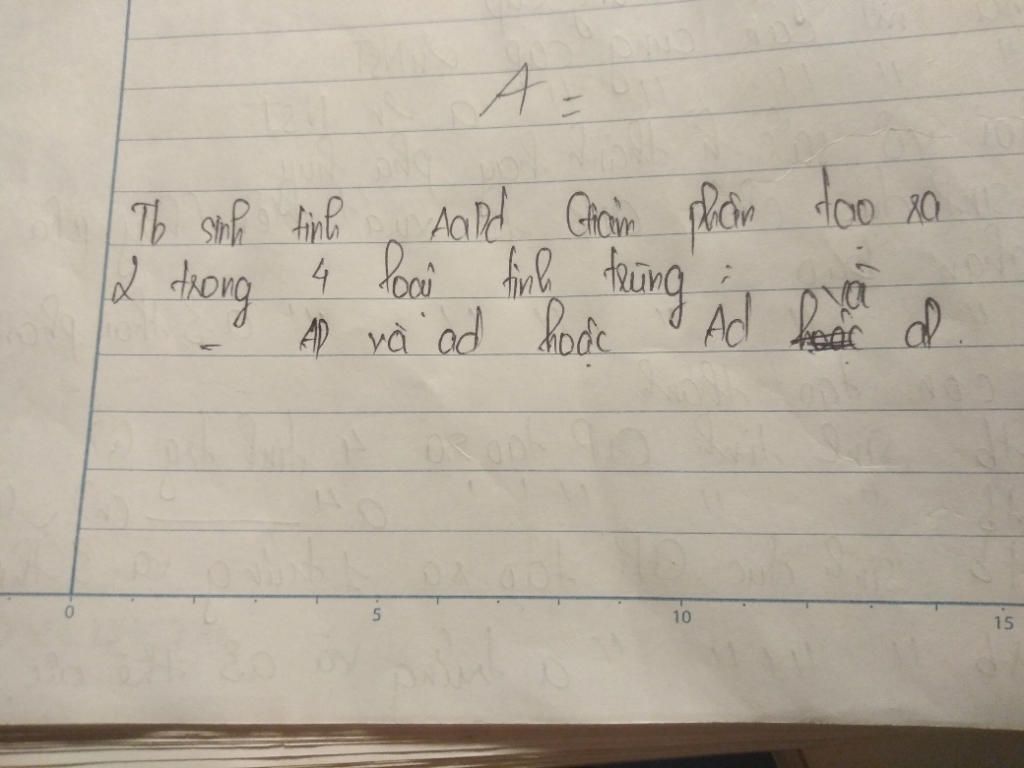 A =
Tb sinh tinh AaDd Giảm phân tạo ra
2 trong 4 loại tinh trùng :
- AD và ad hoặc Ad và aD.
0 5 10 15